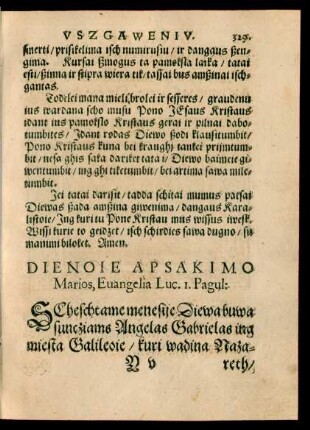 VSZGAWENIV. 329.
smerti / prisikelima isch numirusiu / ir dangaus ßen-
gima. Kursai ßmogus ta pamoksla laika / tatai
esti / ßinna ir stipra wiera tik / tassai bus amßinai isch-
ganitas.
Todelei mana mieli brolei ir sesseres / graudenu
ius wardana scho musu Pono JEsaus Kristaus
idant ius pamokslo Kristaus gerai ir pilnai dabo-
tumbites / Idant rodas Diewo ßodi klausitumbit /
Pono Kristaus kuna bei kraughi tankei prijmtum-
bit / nesa ghis saka dariket tatai / Diewo baimeie gi-
wentumbit / ing ghi tiketumbit / bei artima sawa mile-
tumbit.
Jei tatai darisit / tadda schitai mumus patsai
Diewas ßada amßina giwenima / dangaus Kara-
listoie / Ing kuri tu Pone Kristau mus wissus iwesk.
Wissi kurie to geidzet / isch schirdies sawa dugno / su
manimi bilokit. Amen.
DIENOIE APSAKIMO
Marios, Euangelia Luc. 1. Pagul:
SCheschtame menesije Diewa buwa
siuncziams Angelas Gabrielas ing
miesta Galileoie / kuri wadina Naza-
N v reth /